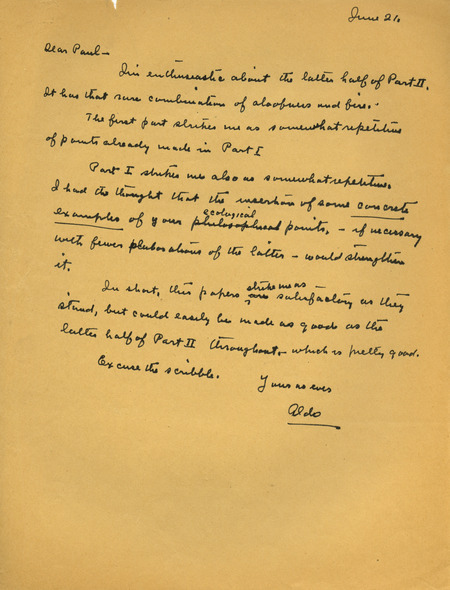 June 21.
Dear Paul—
I'm enthusiastic about the latter half of Part II.
It has that rare combination of aloofness and fire.
The first part strikes me as somewhat repetitive
of points already made in Part I
Part I strikes me also as somewhat repetitive.
I had the thought that the insertion of some concrete
examples of your philosophical ecological points, – if necessary
with fewer elaborations of the latter – would strengthen
it.
In short, the papers are strike me as satisfactory as they
stand, but could easily be made as good as the
latter half of Part II throughout, – which is pretty good.
Excuse the scribble.
Yours as ever
Aldo